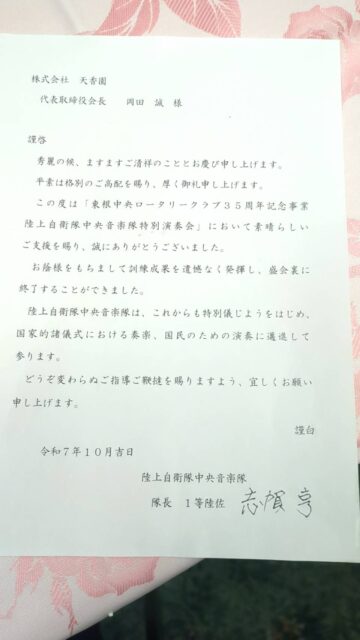 株式会社　天香園
代表取締役会長　岡田　誠　様
謹啓
秀麗の候、ますますご清祥のこととお慶び申し上げます。
平素は格別のご高配を賜り、厚く御礼申し上げます。
この度は「東根中央ロータリークラブ３５周年記念事業
陸上自衛隊中央音楽隊特別演奏会」において素晴らしい
ご支援を賜り、誠にありがとうございました。
お蔭様をもちまして訓練成果を遺憾なく発揮し、盛会裏に
終了することができました。
陸上自衛隊中央音楽隊は、これからも特別儀じょうをはじめ、
国家的諸儀式における奏楽、国民のための演奏に邁進して
参ります。
どうぞ変わらぬご指導ご鞭撻を賜りますよう、宜しくお願い
申し上げます。
謹白
令和７年１０月吉日
陸上自衛隊中央音楽隊
隊長　１等陸佐　志賀　亨